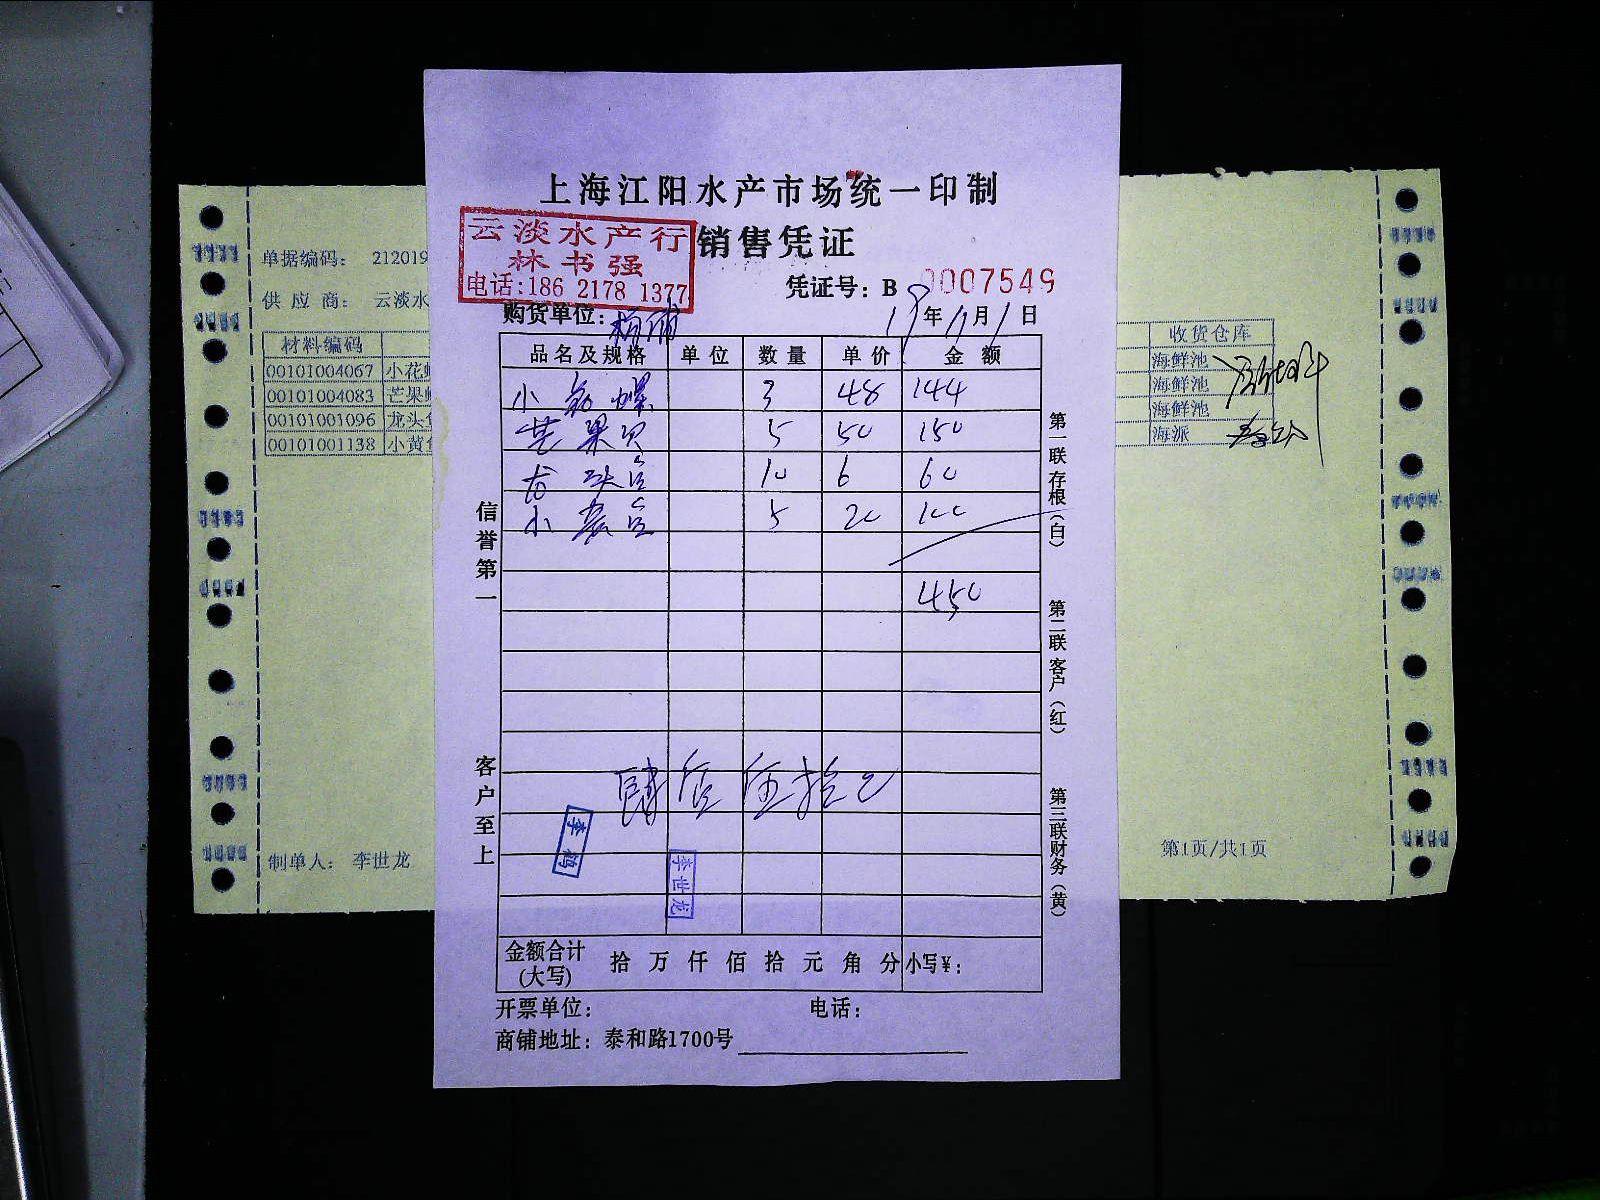 上海江阳水产市场统一印制
销售凭证
云淡水产行
林书强
电话:186 2178 1377
凭证号: B 0007549
购货单位: 杨浦
19年11月1日
品名及规格 单位 数量 单价 金额
小花螺 3 48 144
芒果贝 5 50 150
龙头鱼 10 6 60
小黄鱼 5 20 100
450
肆佰伍拾元
信誉第一
客户至上
第一联存根(白)
第二联客户(红)
第三联财务(黄)
李鹤
李世龙
金额合计(大写) 拾万仟佰拾元角分 小写¥:
开票单位: 电话:
商铺地址: 泰和路1700号
单据编码: 212019
供应商: 云淡水
材料编码
00101004067 小花
00101004083 芒果
00101001096 龙头
00101001138 小黄
制单人: 李世龙
收货仓库
海鲜池
海鲜池
海鲜池
海派
第1页/共1页